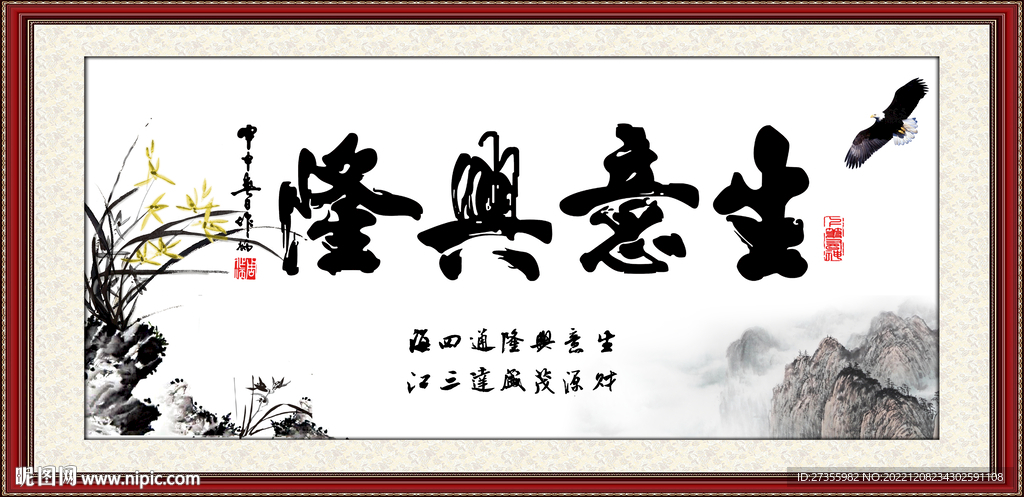 生意興隆
生意興隆通四海
财源茂盛達三江
昵图网 www.nipic.com
ID:27355982 NO:20221208234302591108